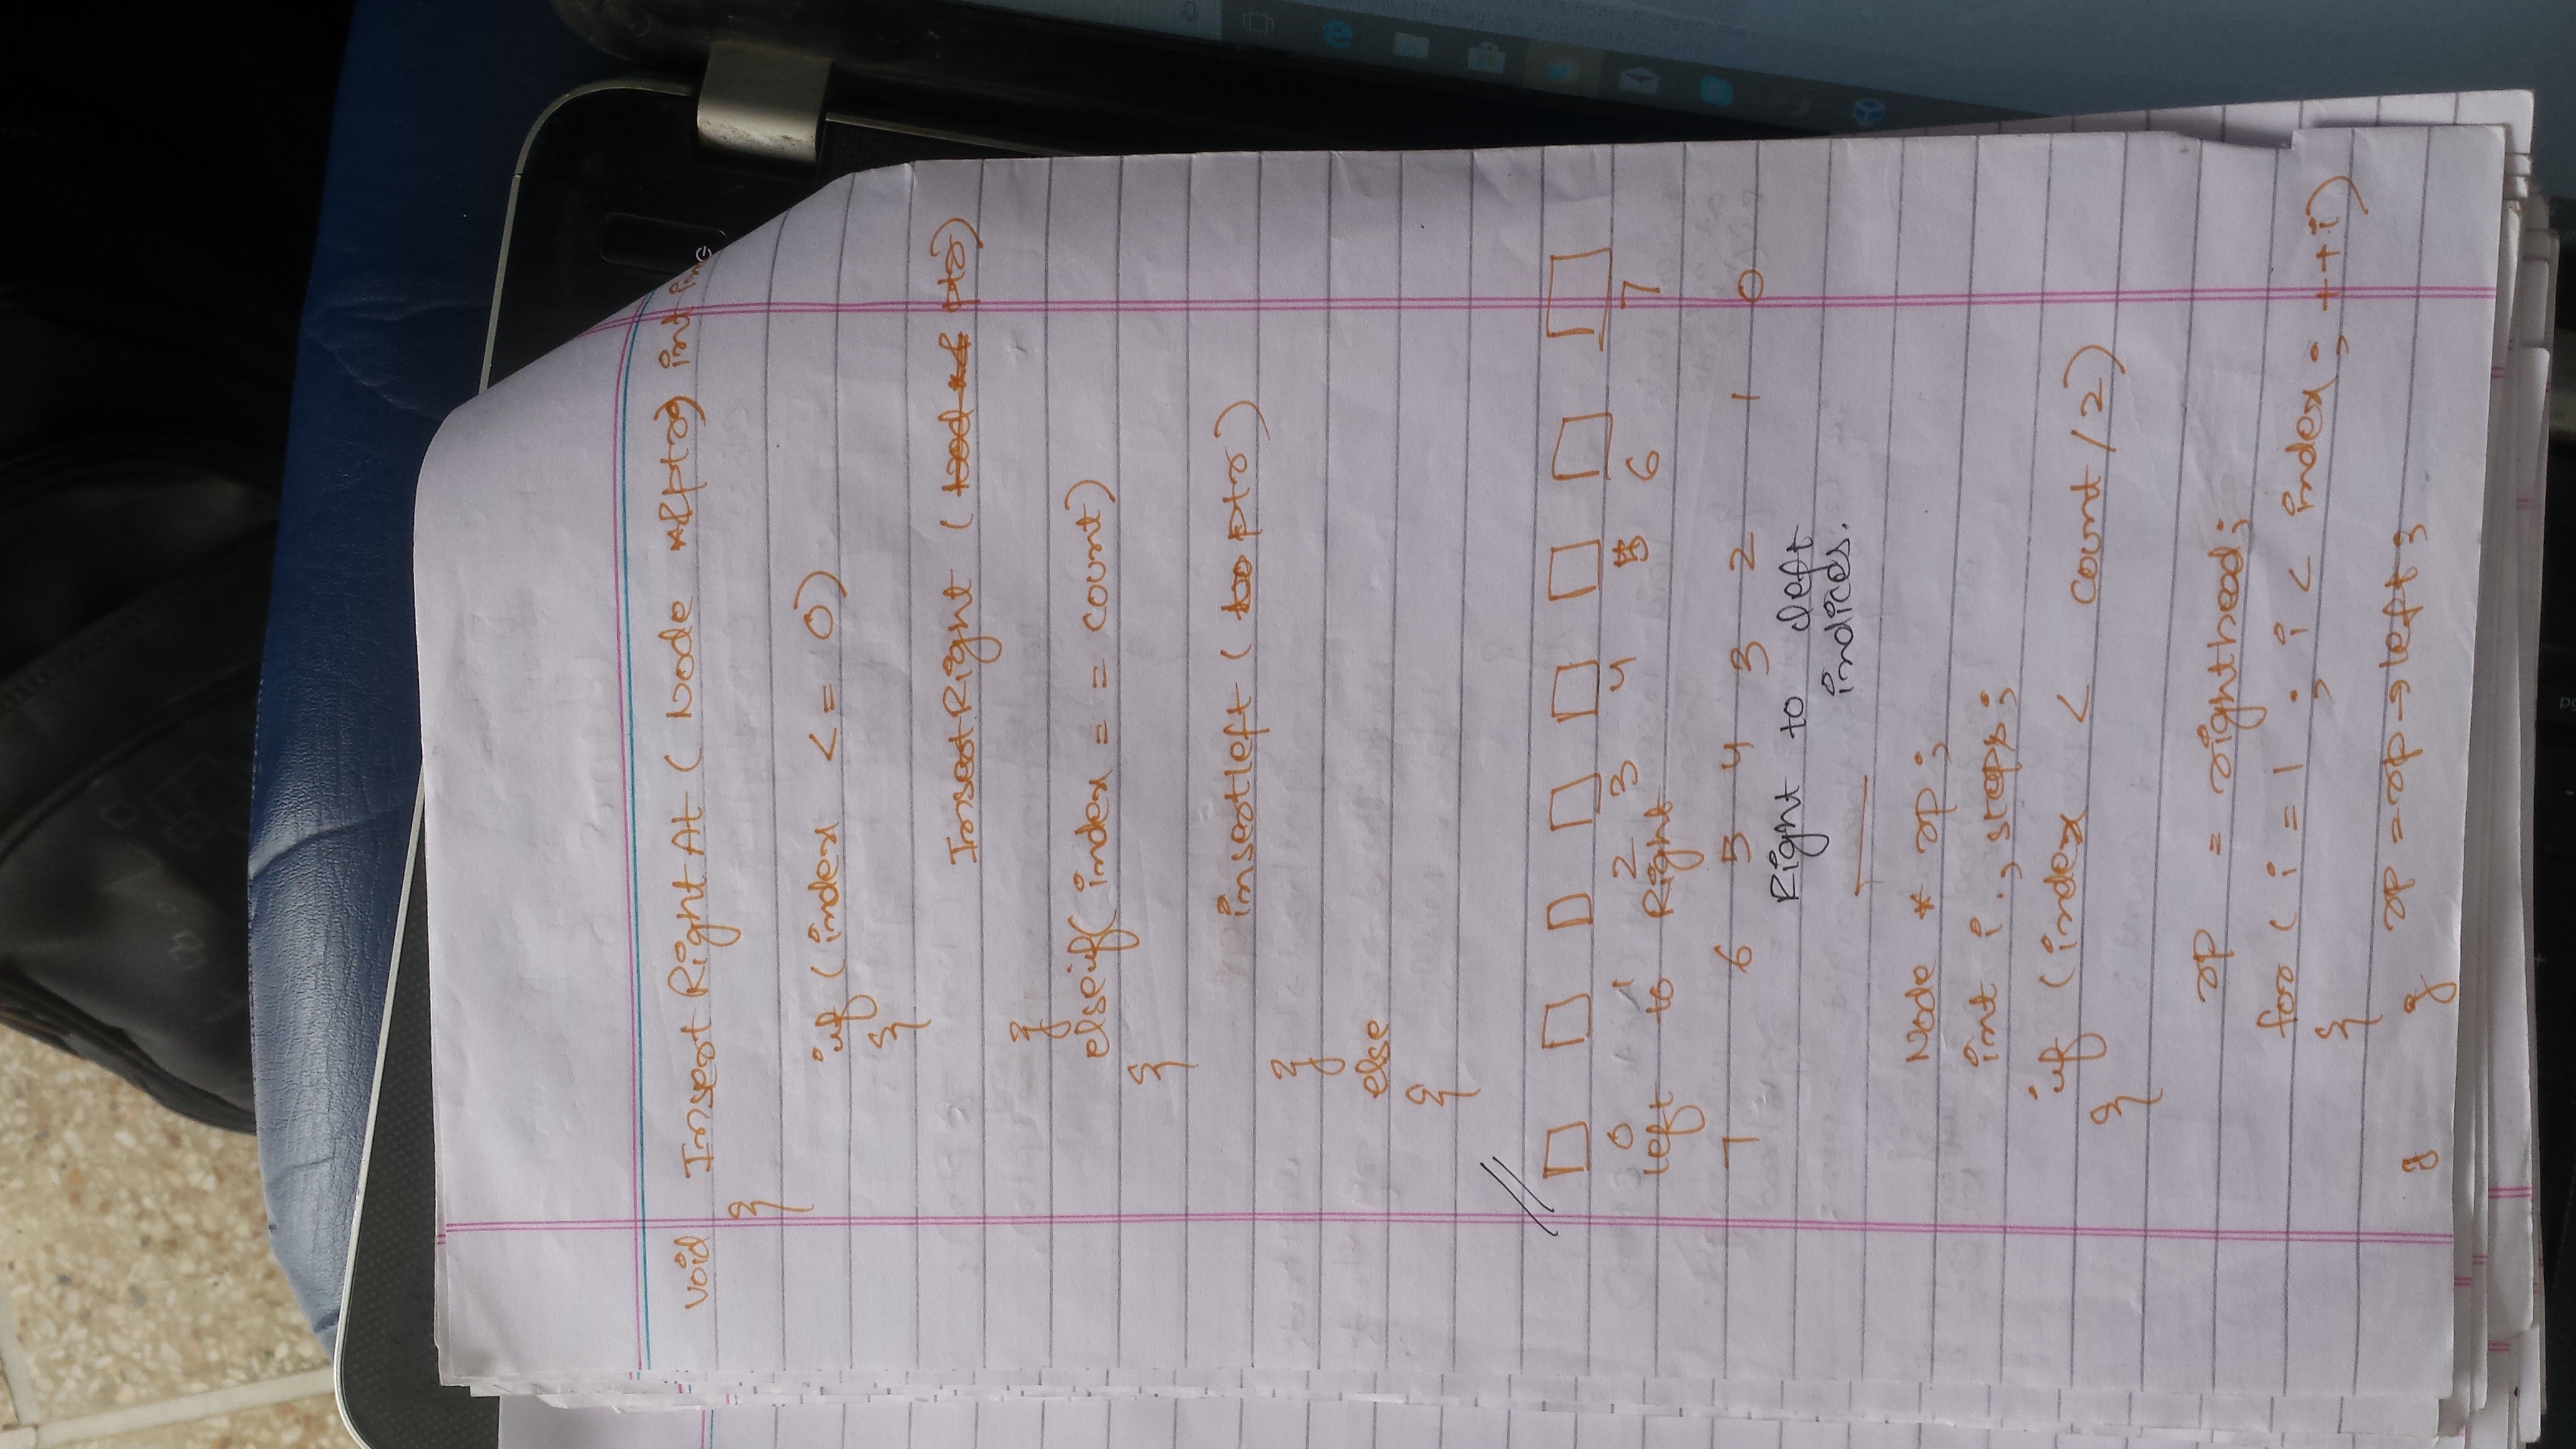 void InsertRightAt ( Node *&ptr) int in
{
if ( index <= 0)
{
InsertRight ( ptr)
}
elseif( index = = count)
{
insertleft ( ptr )
}
else
{
//
0 1 2 3 4 5 6 7
left to Right
7 6 5 4 3 2 1 0
Right to left
indices.
Node * rp ;
int i., steps;
if (index < count/2)
{
rp = righthead;
for ( i = 1 ; i < index ; ++i)
{
rp = rp → left ;
} }